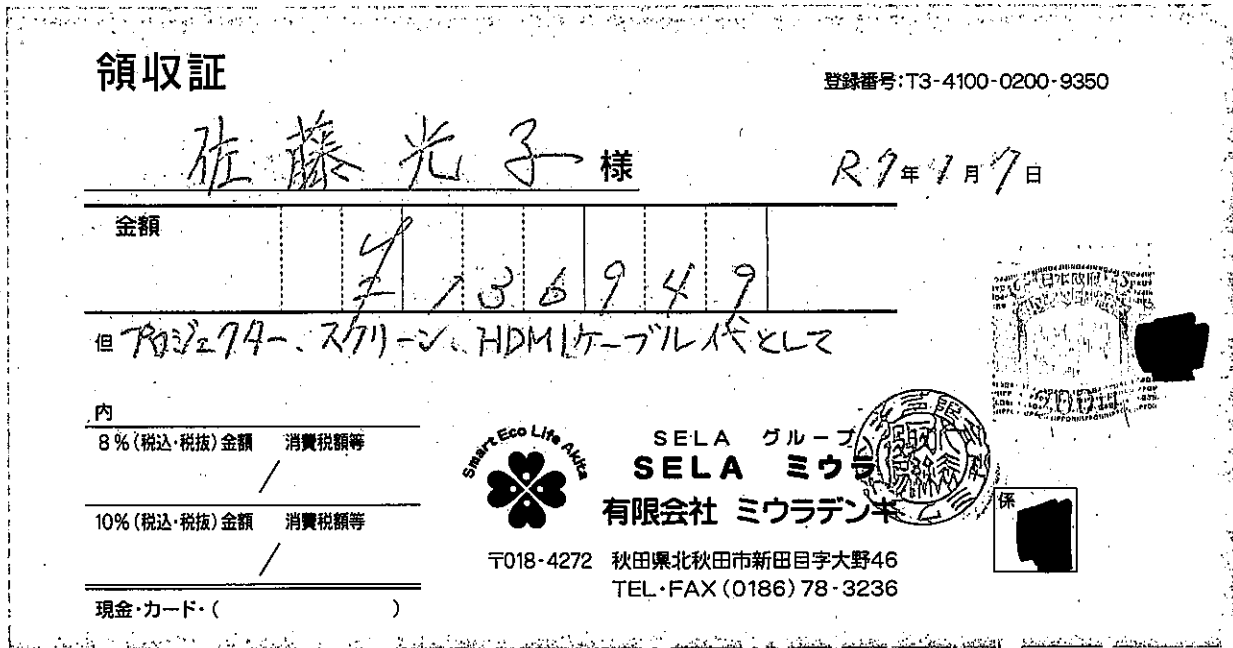 領収証
登録番号:T3-4100-0200-9350
佐藤光子様
R7年1月7日
金額
¥136949
但プロジェクター、スクリーン、HDMIケーブル代として
日本政府
200円
内
8%(税込・税抜)金額 消費税額等
/
10%(税込・税抜)金額 消費税額等
/
現金・カード・( )
Smart Eco Life Akita
SELA グループ
SELA ミウラ
有限会社 ミウラデンキ
〒018-4272 秋田県北秋田市新田目字大野46
TEL・FAX(0186)78-3236
係